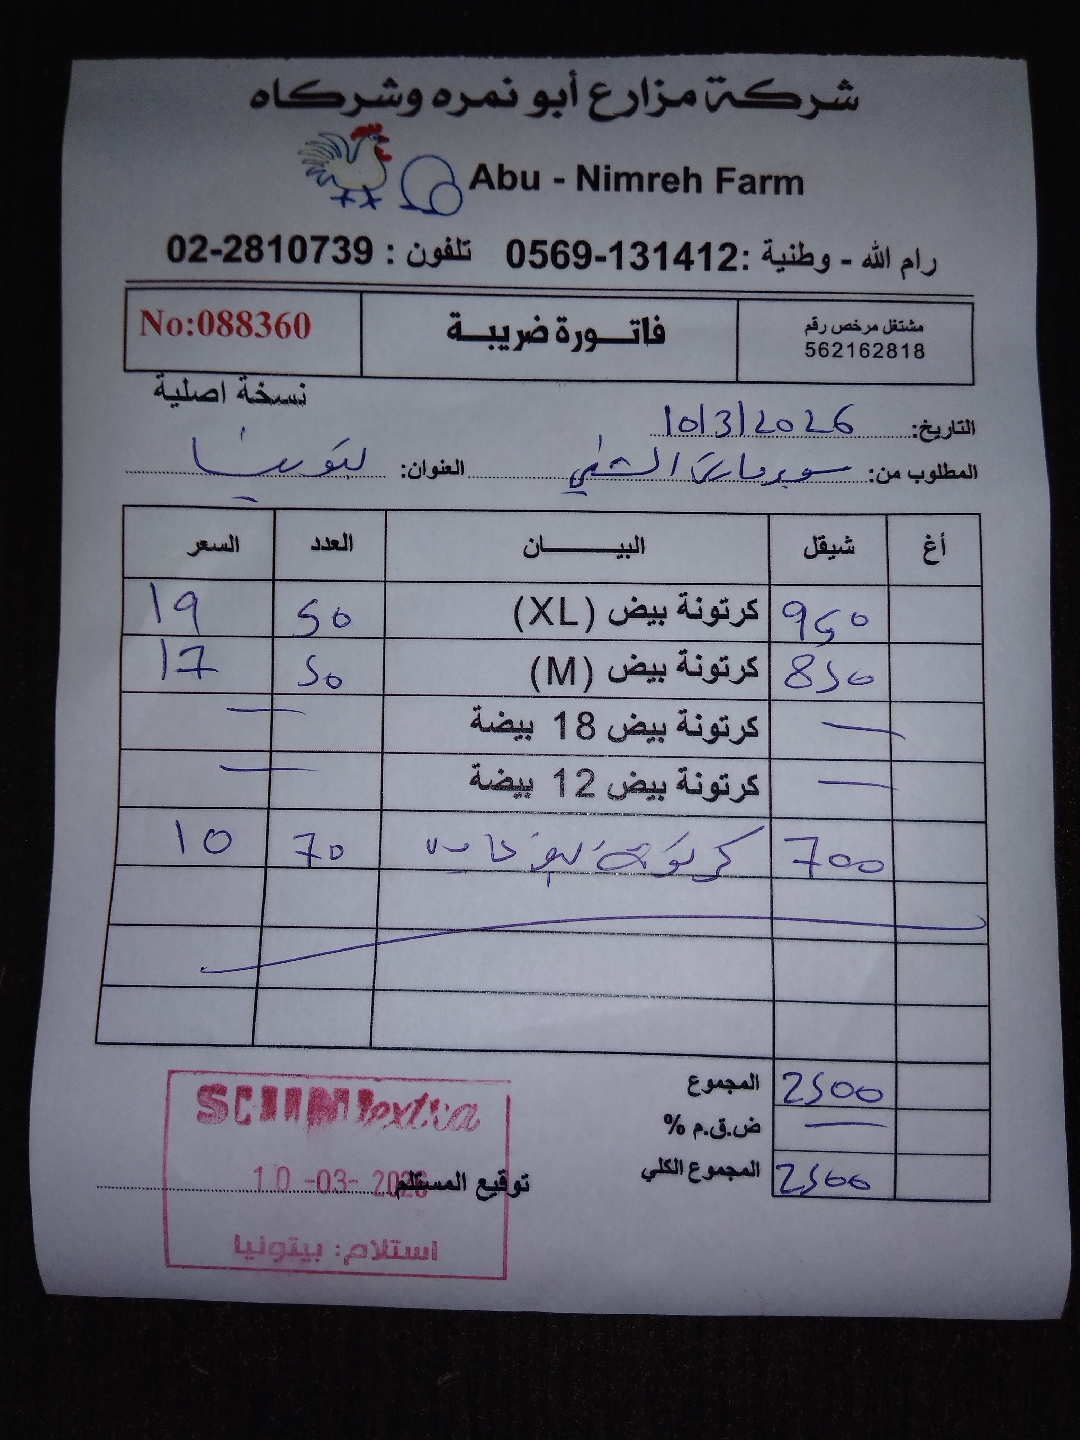 شركة مزارع أبو نمره وشركاه
Abu - Nimreh Farm
رام الله - وطنية :0569-131412 تلفون : 02-2810739
مشتغل مرخص رقم
562162818
فاتورة ضريبة
No:088360
نسخة اصلية
التاريخ: 10/3/2026
المطلوب من: سوبرماركت الشني العنوان: بيتونيا
أغ شيقل البيان العدد السعر
950 كرتونة بيض (XL) 50 19
850 كرتونة بيض (M) 50 17
— كرتونة بيض 18 بيضة —
— كرتونة بيض 12 بيضة —
700 كرتونة بيض 70 10
المجموع 2500
ض.ق.م % —
المجموع الكلي 2500
توقيع المستلم
extra
10-03-2026
استلام: بيتونيا